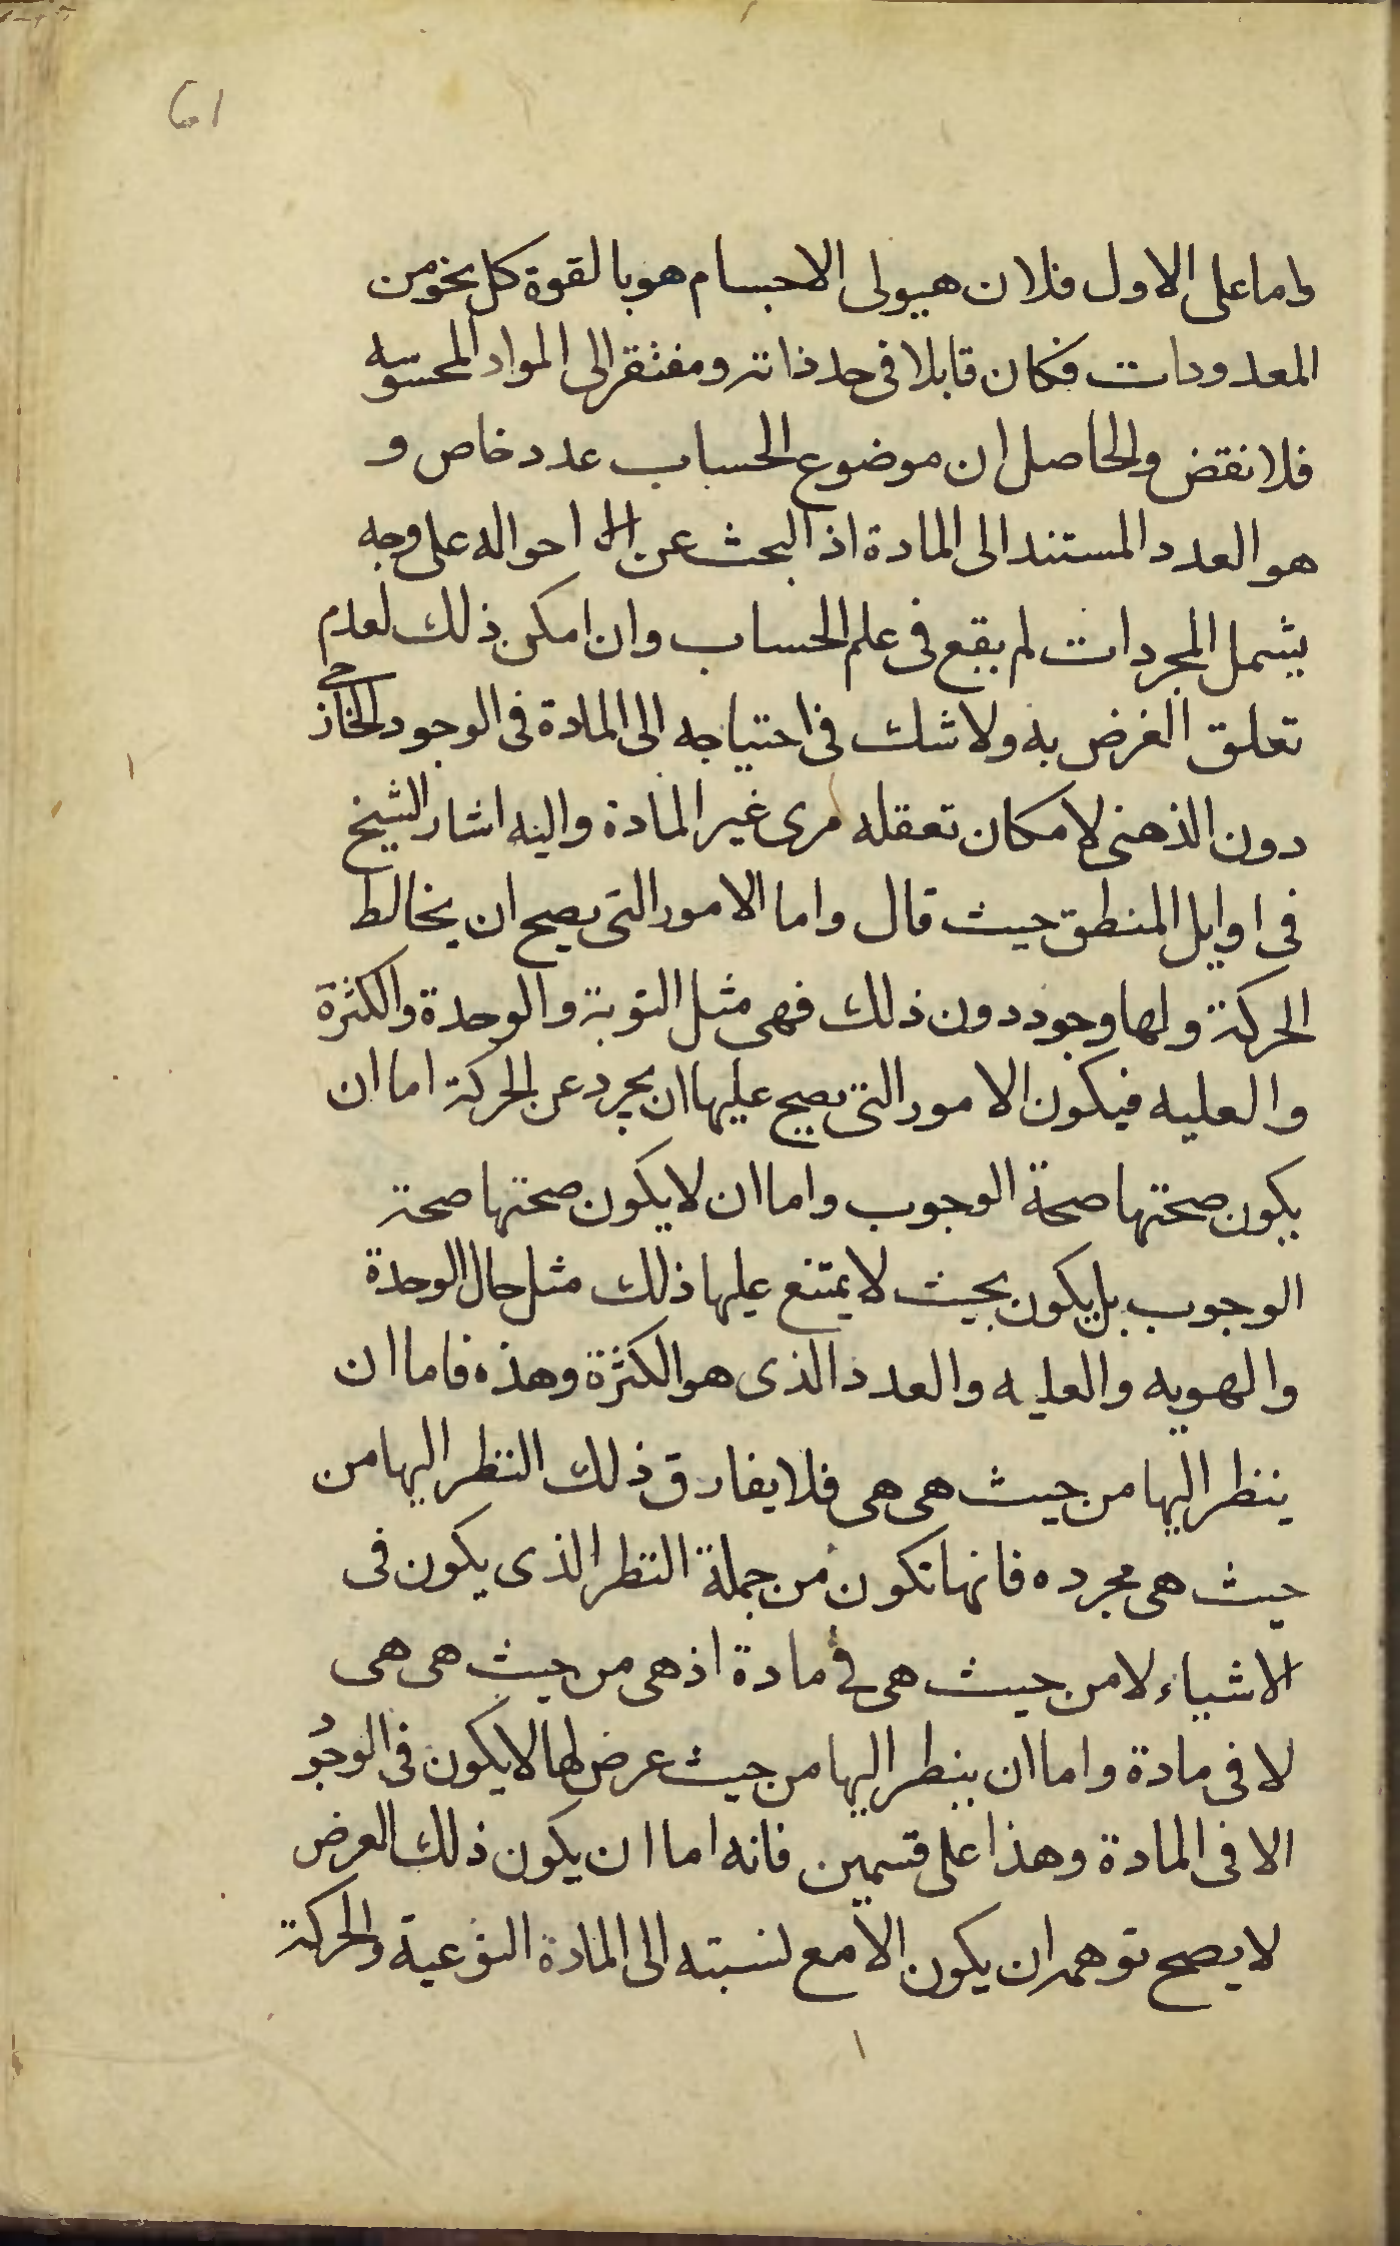 61
واما على الاول فلان هيولى الاجسام هو بالقوة كل نحو من
المعدودات فكان قابلا فى حد ذاته ومفتقر الى المواد المحسوسه
فلا نقض والحاصل ان موضوع الحساب عدد خاص و
هو العدد المستند الى المادة اذ البحث عن احواله على وجه
يشمل المجردات لم يقع فى علم الحساب وان امكن ذلك لعدم
تعلق الغرض به ولا شك فى احتياجه الى المادة فى الوجود الخارجى
دون الذهنى لامكان تعقله عرى غير المادة واليه اشار الشيخ
فى اوايل المنطق حيث قال واما الامور التى يصح ان يخالط
الحركة ولها وجود دون ذلك فهى مثل الهوية والوحدة والكثرة
والعليه فيكون الامور التى يصح عليها ان يجرد عن الحركة اما ان
يكون صحتها صحة الوجوب واما ان لا يكون صحتها صحة
الوجوب بل يكون بحيث لا يمتنع عليها ذلك مثل حال الوحدة
والهويه والعليه والعدد الذى هو الكثرة وهذه فاما ان
ينظر اليها من حيث هى هى فلا يفارق ذلك النظر اليها من
حيث هى مجرده فانها تكون من جملة النظر الذى يكون فى
الاشياء لا من حيث هى فى مادة اذ هى من حيث هى هى
لا فى مادة واما ان ينظر اليها من حيث عرض لها لا يكون فى الوجود
الا فى المادة وهذا على قسمين فانه اما ان يكون ذلك العرض
لا يصح توهمه ان يكون الا مع نسبته الى المادة النوعية والحركة